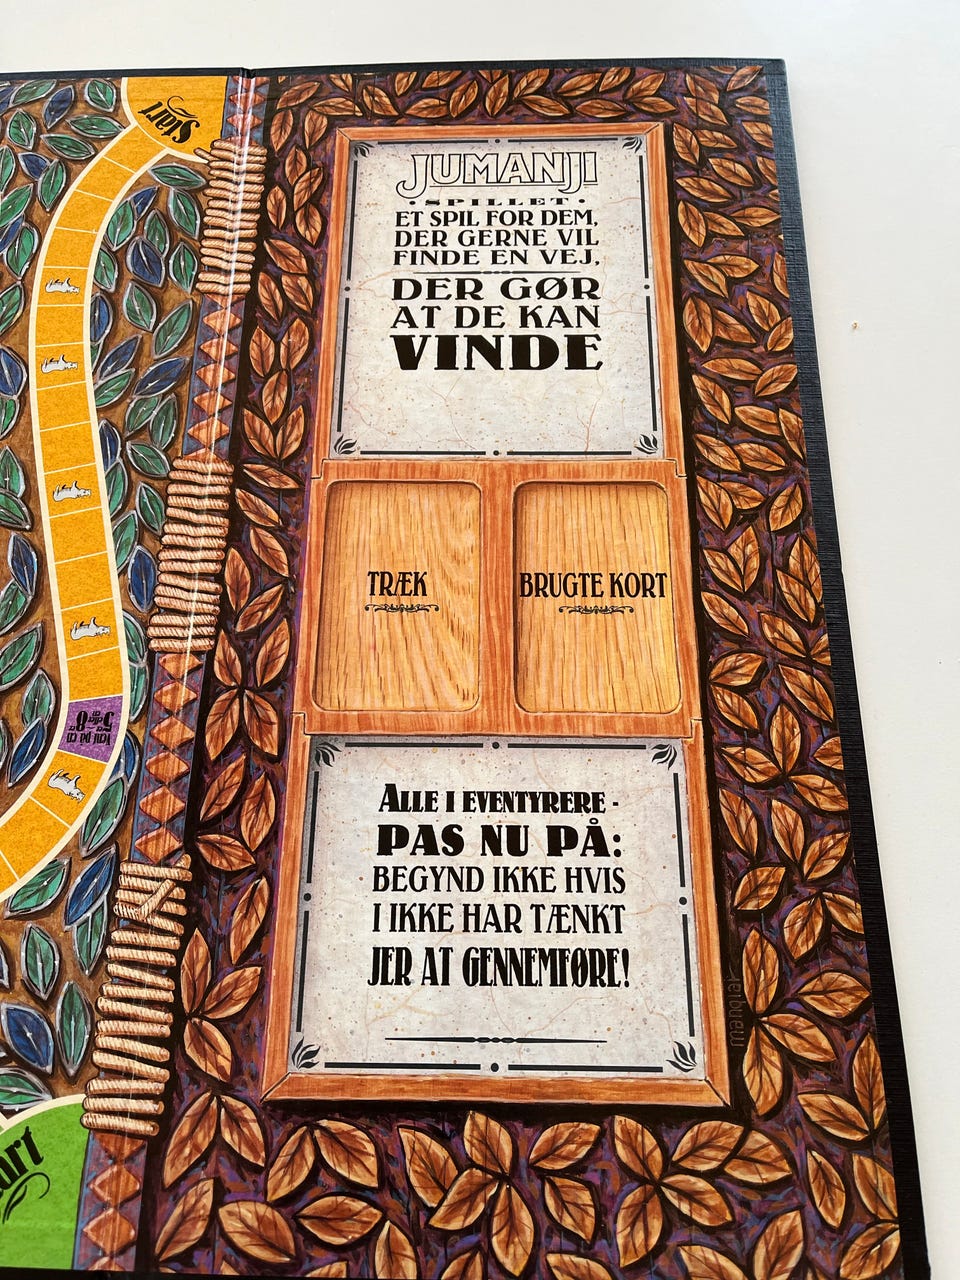 Start
JUMANJI
• SPILLET •
ET SPIL FOR DEM,
DER GERNE VIL
FINDE EN VEJ,
DER GØR
AT DE KAN
VINDE
TRÆK
BRUGTE KORT
Vent på en
5'er eller
en 8'er
ALLE I EVENTYRERE -
PAS NU PÅ:
BEGYND IKKE HVIS
I IKKE HAR TÆNKT
JER AT GENNEMFØRE!
art